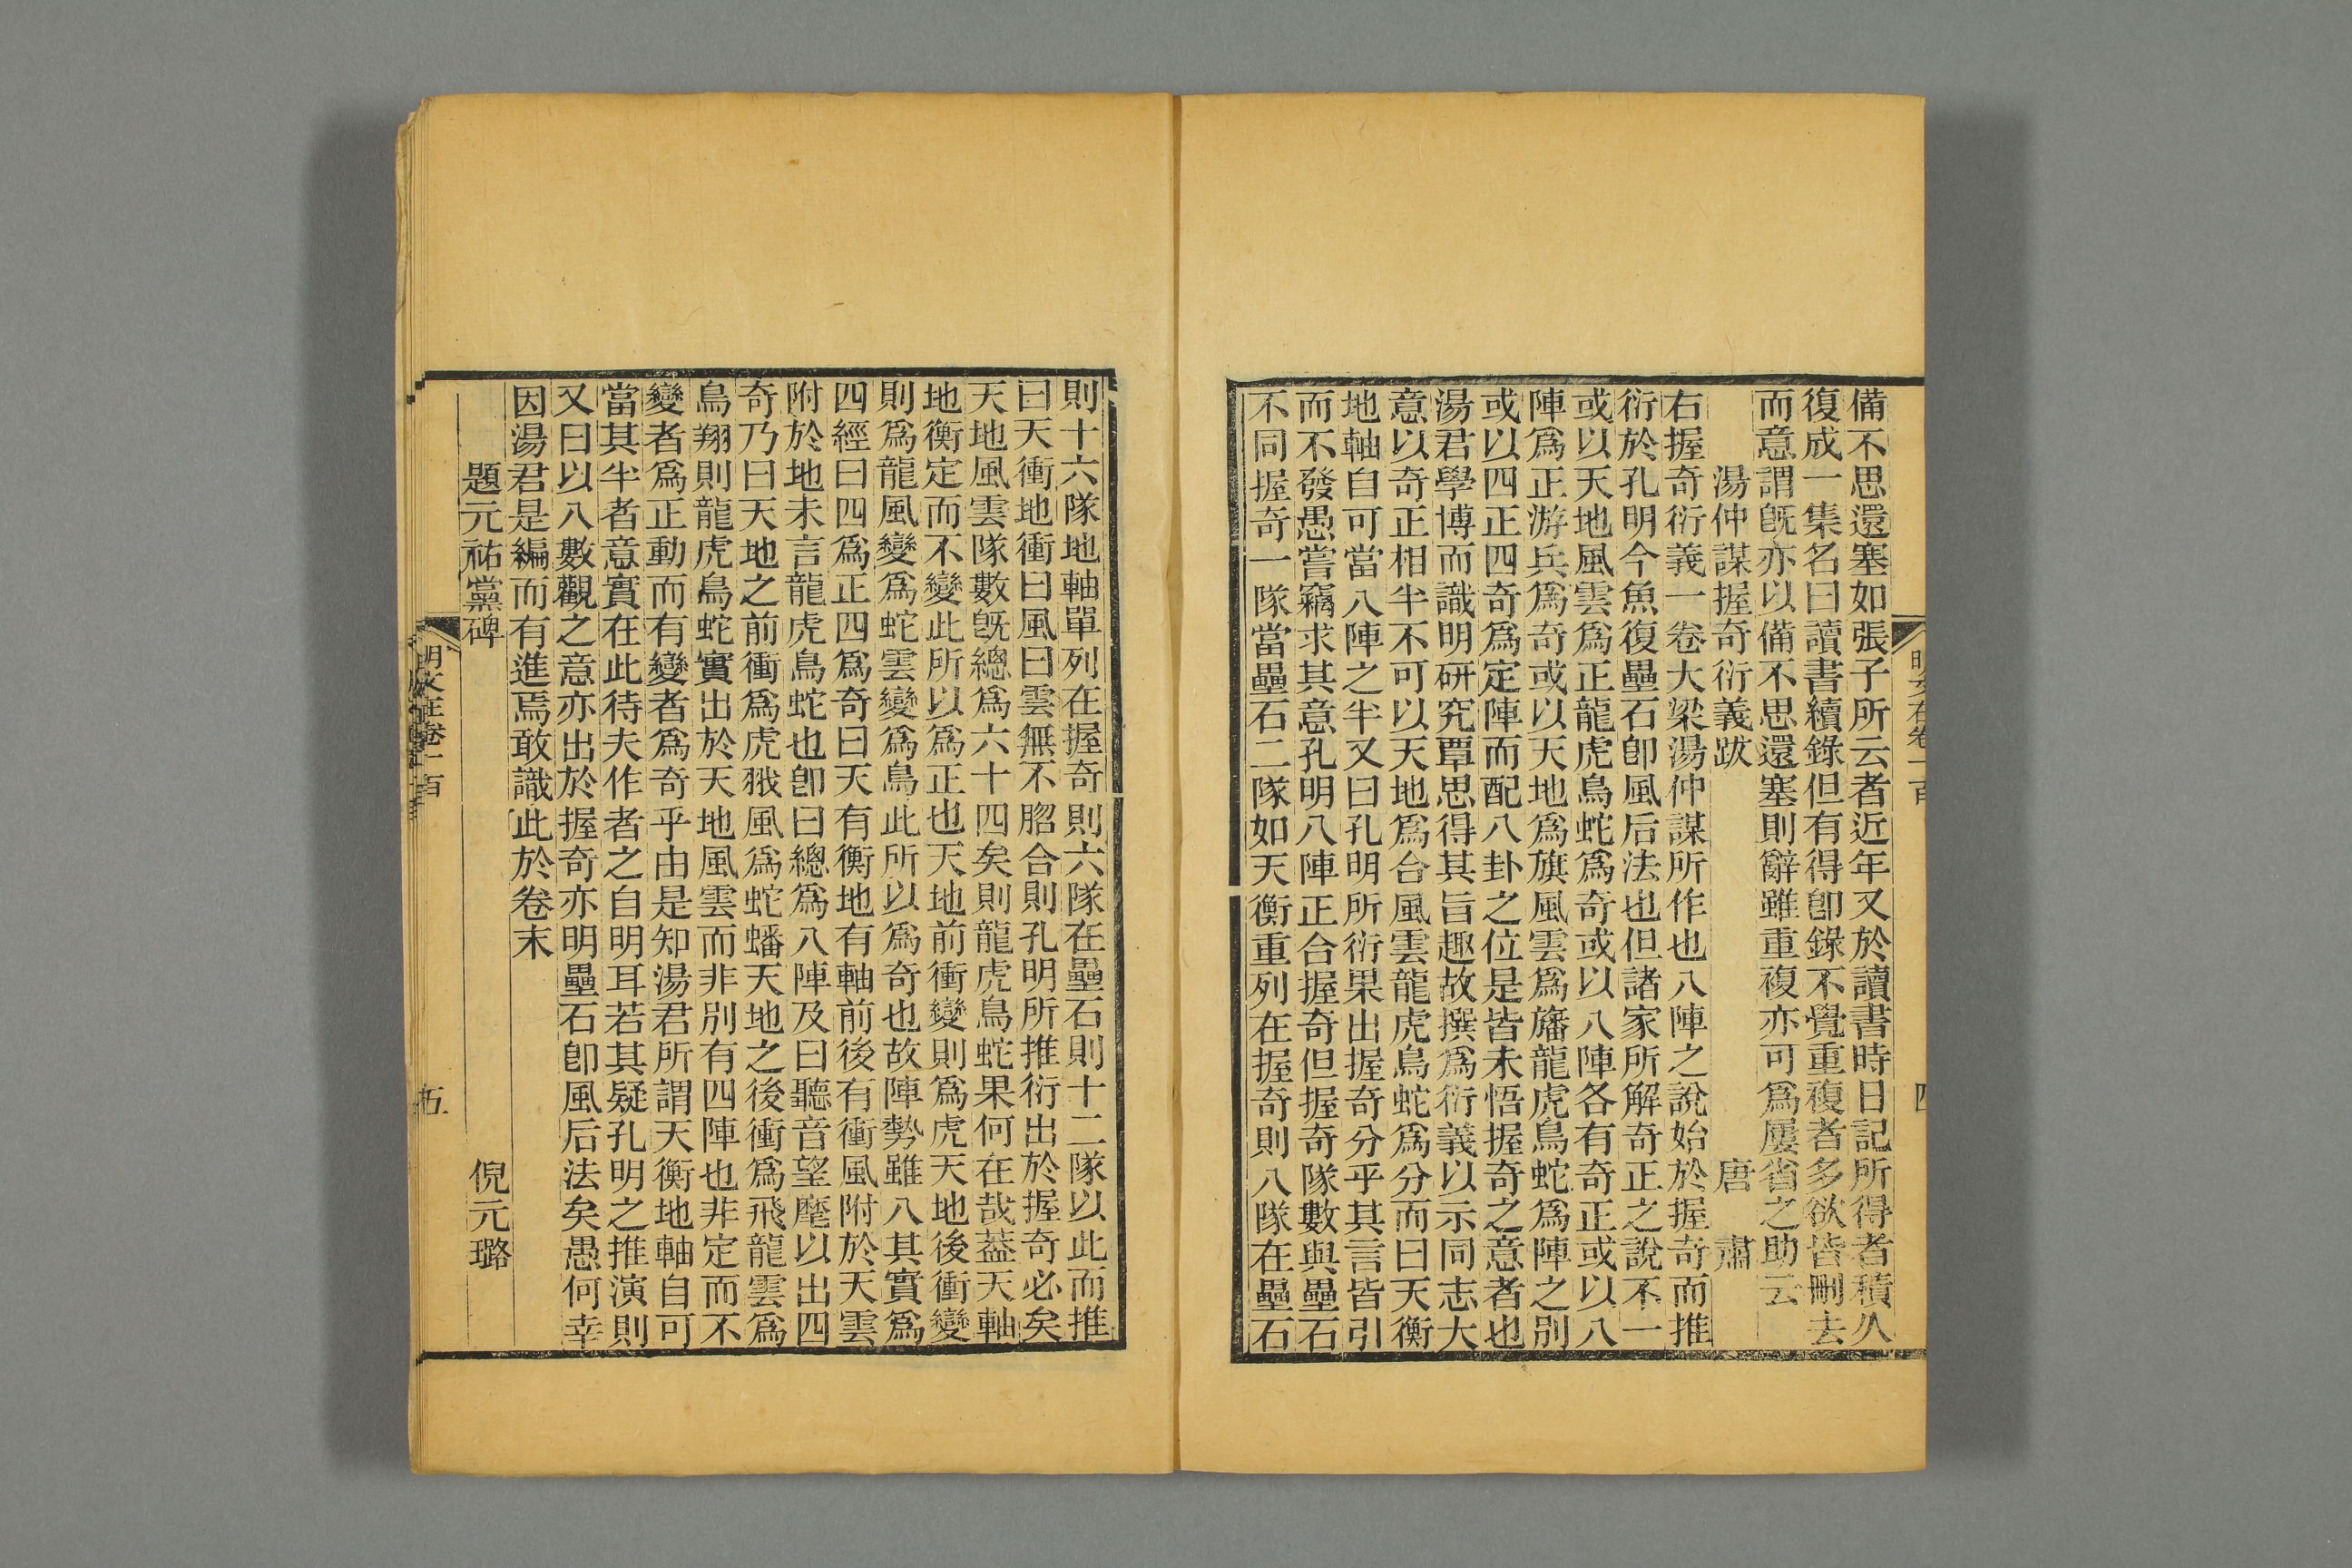 備不思還塞如張子所云者近年又於讀書時日記所得者積久
復成一集名曰讀書續錄但有得卽錄不覺重複者多欲皆刪去
而意謂旣亦以備不思還塞則辭雖重複亦可爲屢省之助云
湯仲謀握奇衍義跋 唐肅
右握奇衍義一卷大梁湯仲謀所作也八陣之說始於握奇而推
衍於孔明今魚復壘石卽風后法也但諸家所解奇正之說不一
或以天地風雲爲正龍虎鳥蛇爲奇或以八陣各有奇正或以八
陣爲正游兵爲奇或以天地爲旗風雲爲旛龍虎鳥蛇爲陣之別
或以四正四奇爲定陣而配八卦之位是皆未悟握奇之意者也
湯君學博而識明研究覃思得其旨趣故撰爲衍義以示同志大
意以奇正相半不可以天地爲合風雲龍虎鳥蛇爲分而曰天衡
地軸自可當八陣之半又曰孔明所衍果出握奇分乎其言皆引
而不發愚嘗竊求其意孔明八陣正合握奇但握奇隊數與壘石
不同握奇一隊當壘石二隊如天衡重列在握奇則八隊在壘石
則十六隊地軸單列在握奇則六隊在壘石則十二隊以此而推
曰天衝地衝曰風曰雲無不脗合則孔明所推衍出於握奇必矣
天地風雲隊數旣總爲六十四矣則龍虎鳥蛇果何在哉蓋天軸
地衡定而不變此所以爲正也天地前衝變則爲虎天地後衝變
則爲龍風變爲蛇雲變爲鳥此所以爲奇也故陣勢雖八其實爲
四經曰四爲正四爲奇曰天有衡地有軸前後有衝風附於天雲
附於地未言龍虎鳥蛇也卽曰總爲八陣及曰聽音望麾以出四
奇乃曰天地之前衝爲虎翼風爲蛇蟠天地之後衝爲飛龍雲爲
鳥翔則龍虎鳥蛇實出於天地風雲而非別有四陣也非定而不
變者爲正動而有變者爲奇乎由是知湯君所謂天衡地軸自可
當其半者意實在此待夫作者之自明耳若其疑孔明之推演則
又曰以八數觀之意亦出於握奇亦明壘石卽風后法矣愚何幸
因湯君是編而有進焉敢識此於卷末
題元祐黨碑 倪元璐
明文在卷一百
五
明文在卷一百
四